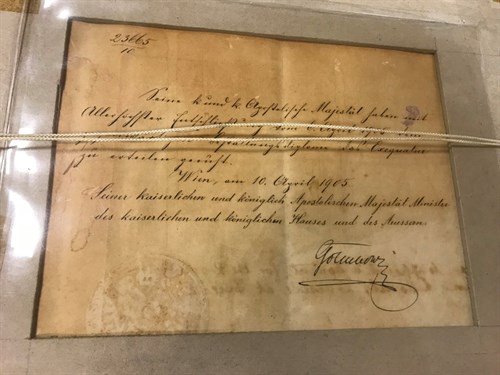 23665
10
Seine k. und k. Apostolische Majestät haben mit
Allerhöchster Entschließung vom
des Exequatur
zu erteilen geruht.
Wien, am 10. April 1905.
Seiner kaiserlichen und königlich Apostolischen Majestät Minister
des kaiserlichen und königlichen Hauses und des Aussern:
Gołuchowski